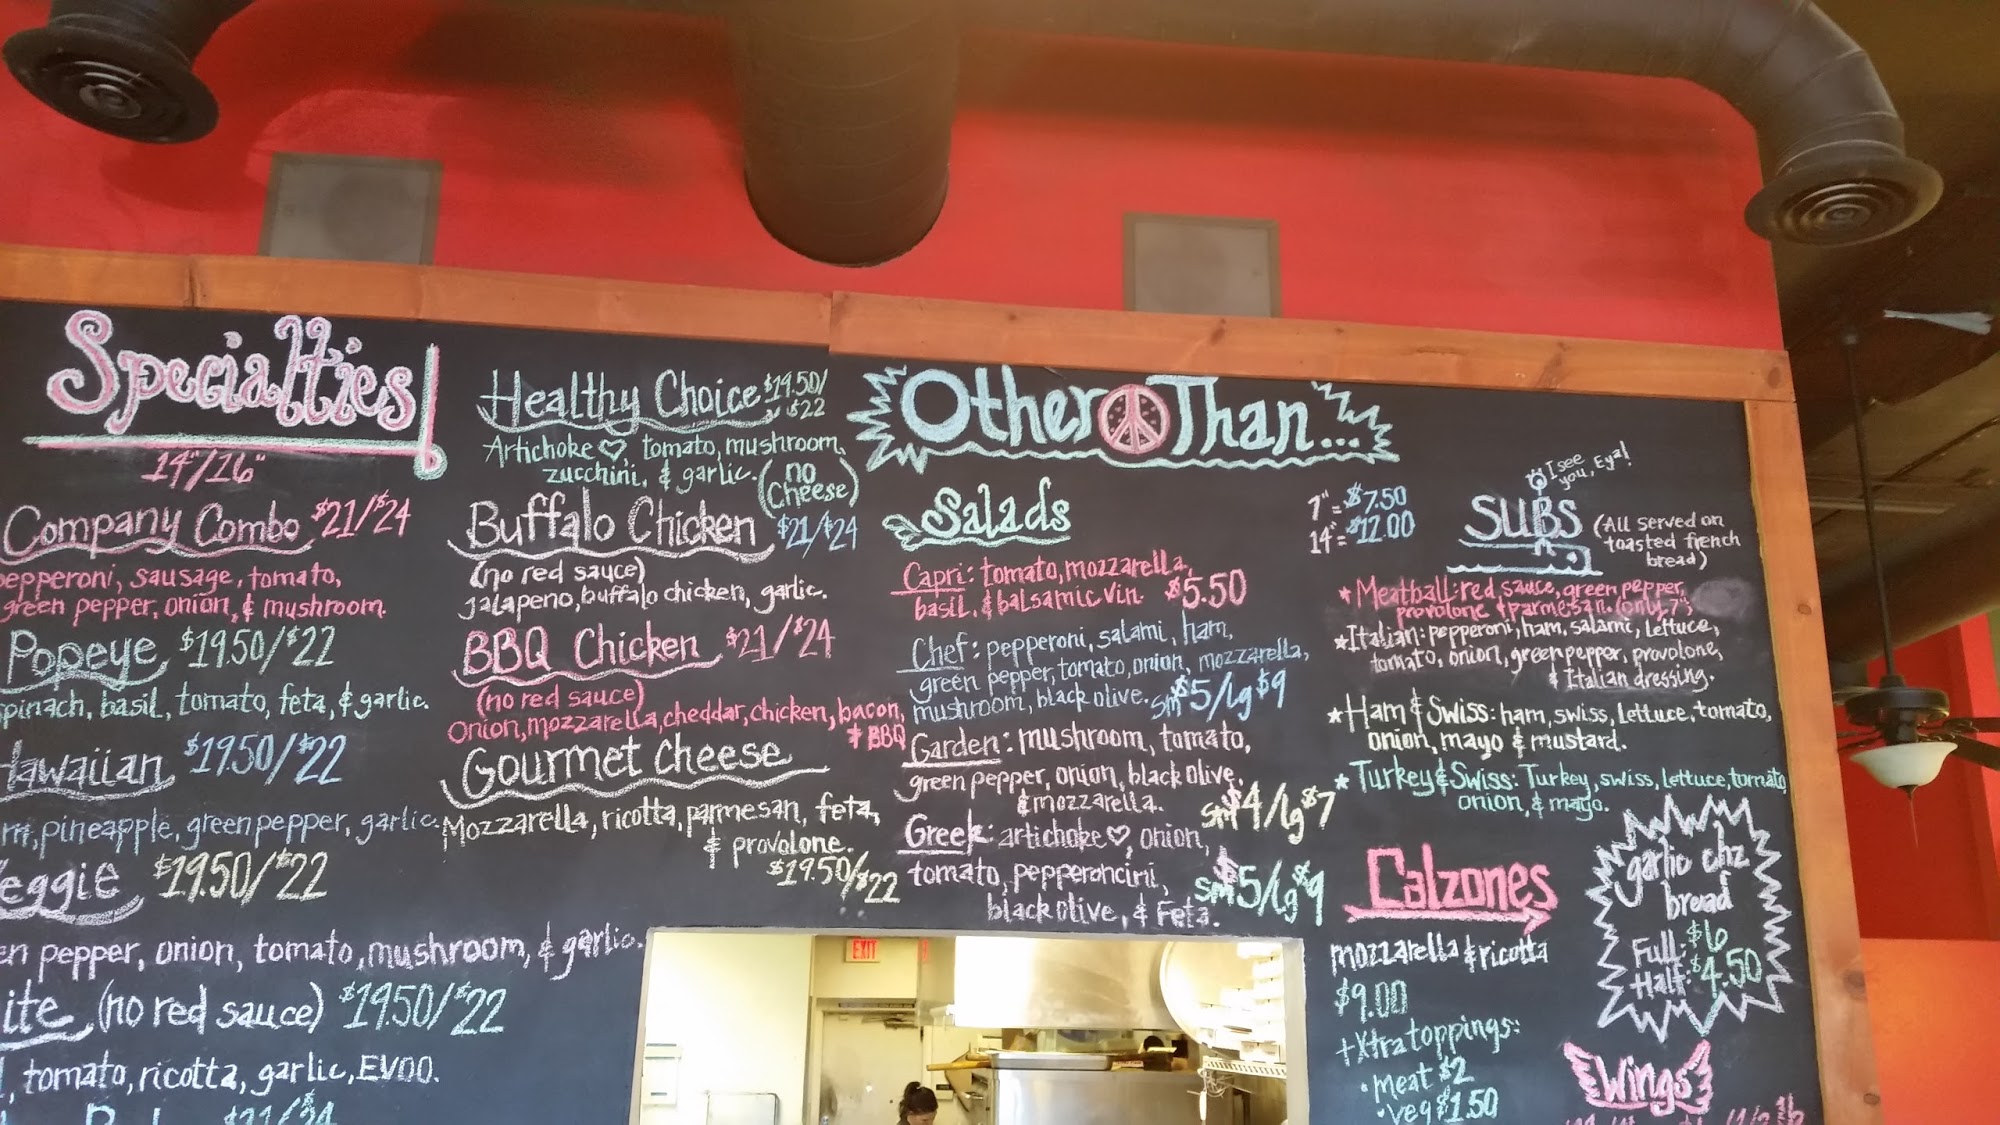 Specialties
14"/16"
Company Combo $21/$24
pepperoni, sausage, tomato,
green pepper, onion, & mushroom.
Popeye $19.50/$22
spinach, basil, tomato, feta, & garlic.
Hawaiian $19.50/$22
pineapple, green pepper, garlic.
Veggie $19.50/$22
pepper, onion, tomato, mushroom, & garlic.
(no red sauce) $19.50/$22
tomato, ricotta, garlic, EVOO.
$21/$24
Healthy Choice $19.50/
$22
Artichoke ♡, tomato, mushroom,
zucchini, & garlic. (no
Cheese)
Buffalo Chicken $21/$24
(no red sauce)
jalapeno, buffalo chicken, garlic.
BBQ Chicken $21/$24
(no red sauce)
Onion, mozzarella, cheddar, chicken, bacon,
+ BBQ
Gourmet Cheese
Mozzarella, ricotta, parmesan, feta,
& provolone.
$19.50/$22
Other Than...
Salads
Capri: tomato, mozzarella,
basil, & balsamic vin. $5.50
Chef: pepperoni, salami, ham,
green pepper, tomato, onion, mozzarella,
mushroom, black olive. sm $5/lg $9
Garden: mushroom, tomato,
green pepper, onion, black olive,
& mozzarella. sm $4/lg $7
Greek: artichoke ♡, onion,
tomato, pepperoncini,
black olive, & Feta. sm $5/lg $9
7" = $7.50
14" = $12.00
I see
you, Eya!
SUBS (All served on
toasted french
bread)
* Meatball: red sauce, green pepper,
provolone & parmesan. (only 7")
* Italian: pepperoni, ham, salami, lettuce,
tomato, onion, green pepper, provolone,
& Italian dressing.
* Ham & Swiss: ham, swiss, lettuce, tomato,
onion, mayo & mustard.
* Turkey & Swiss: Turkey, swiss, lettuce, tomato,
onion, & mayo.
Calzones
mozzarella & ricotta
$9.00
+ Xtra toppings:
• meat $2
• veg $1.50
garlic chz
bread
Full: $6
Half: $4.50
Wings
EXIT